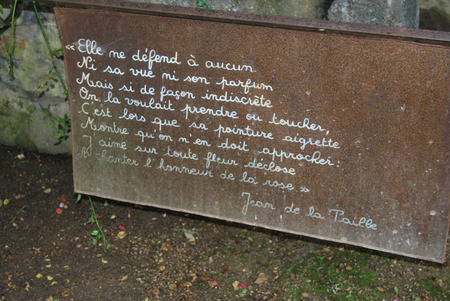 « Elle ne défend à aucun
Ni sa vue ni son parfum
Mais si de façon indiscrète
On la voulait prendre ou toucher,
C'est lors que sa pointure aigrette
Montre qu'on n'en doit approcher:
J'aime sur toute fleur déclose
A chanter l'honneur de la rose »
Jean de la Taille